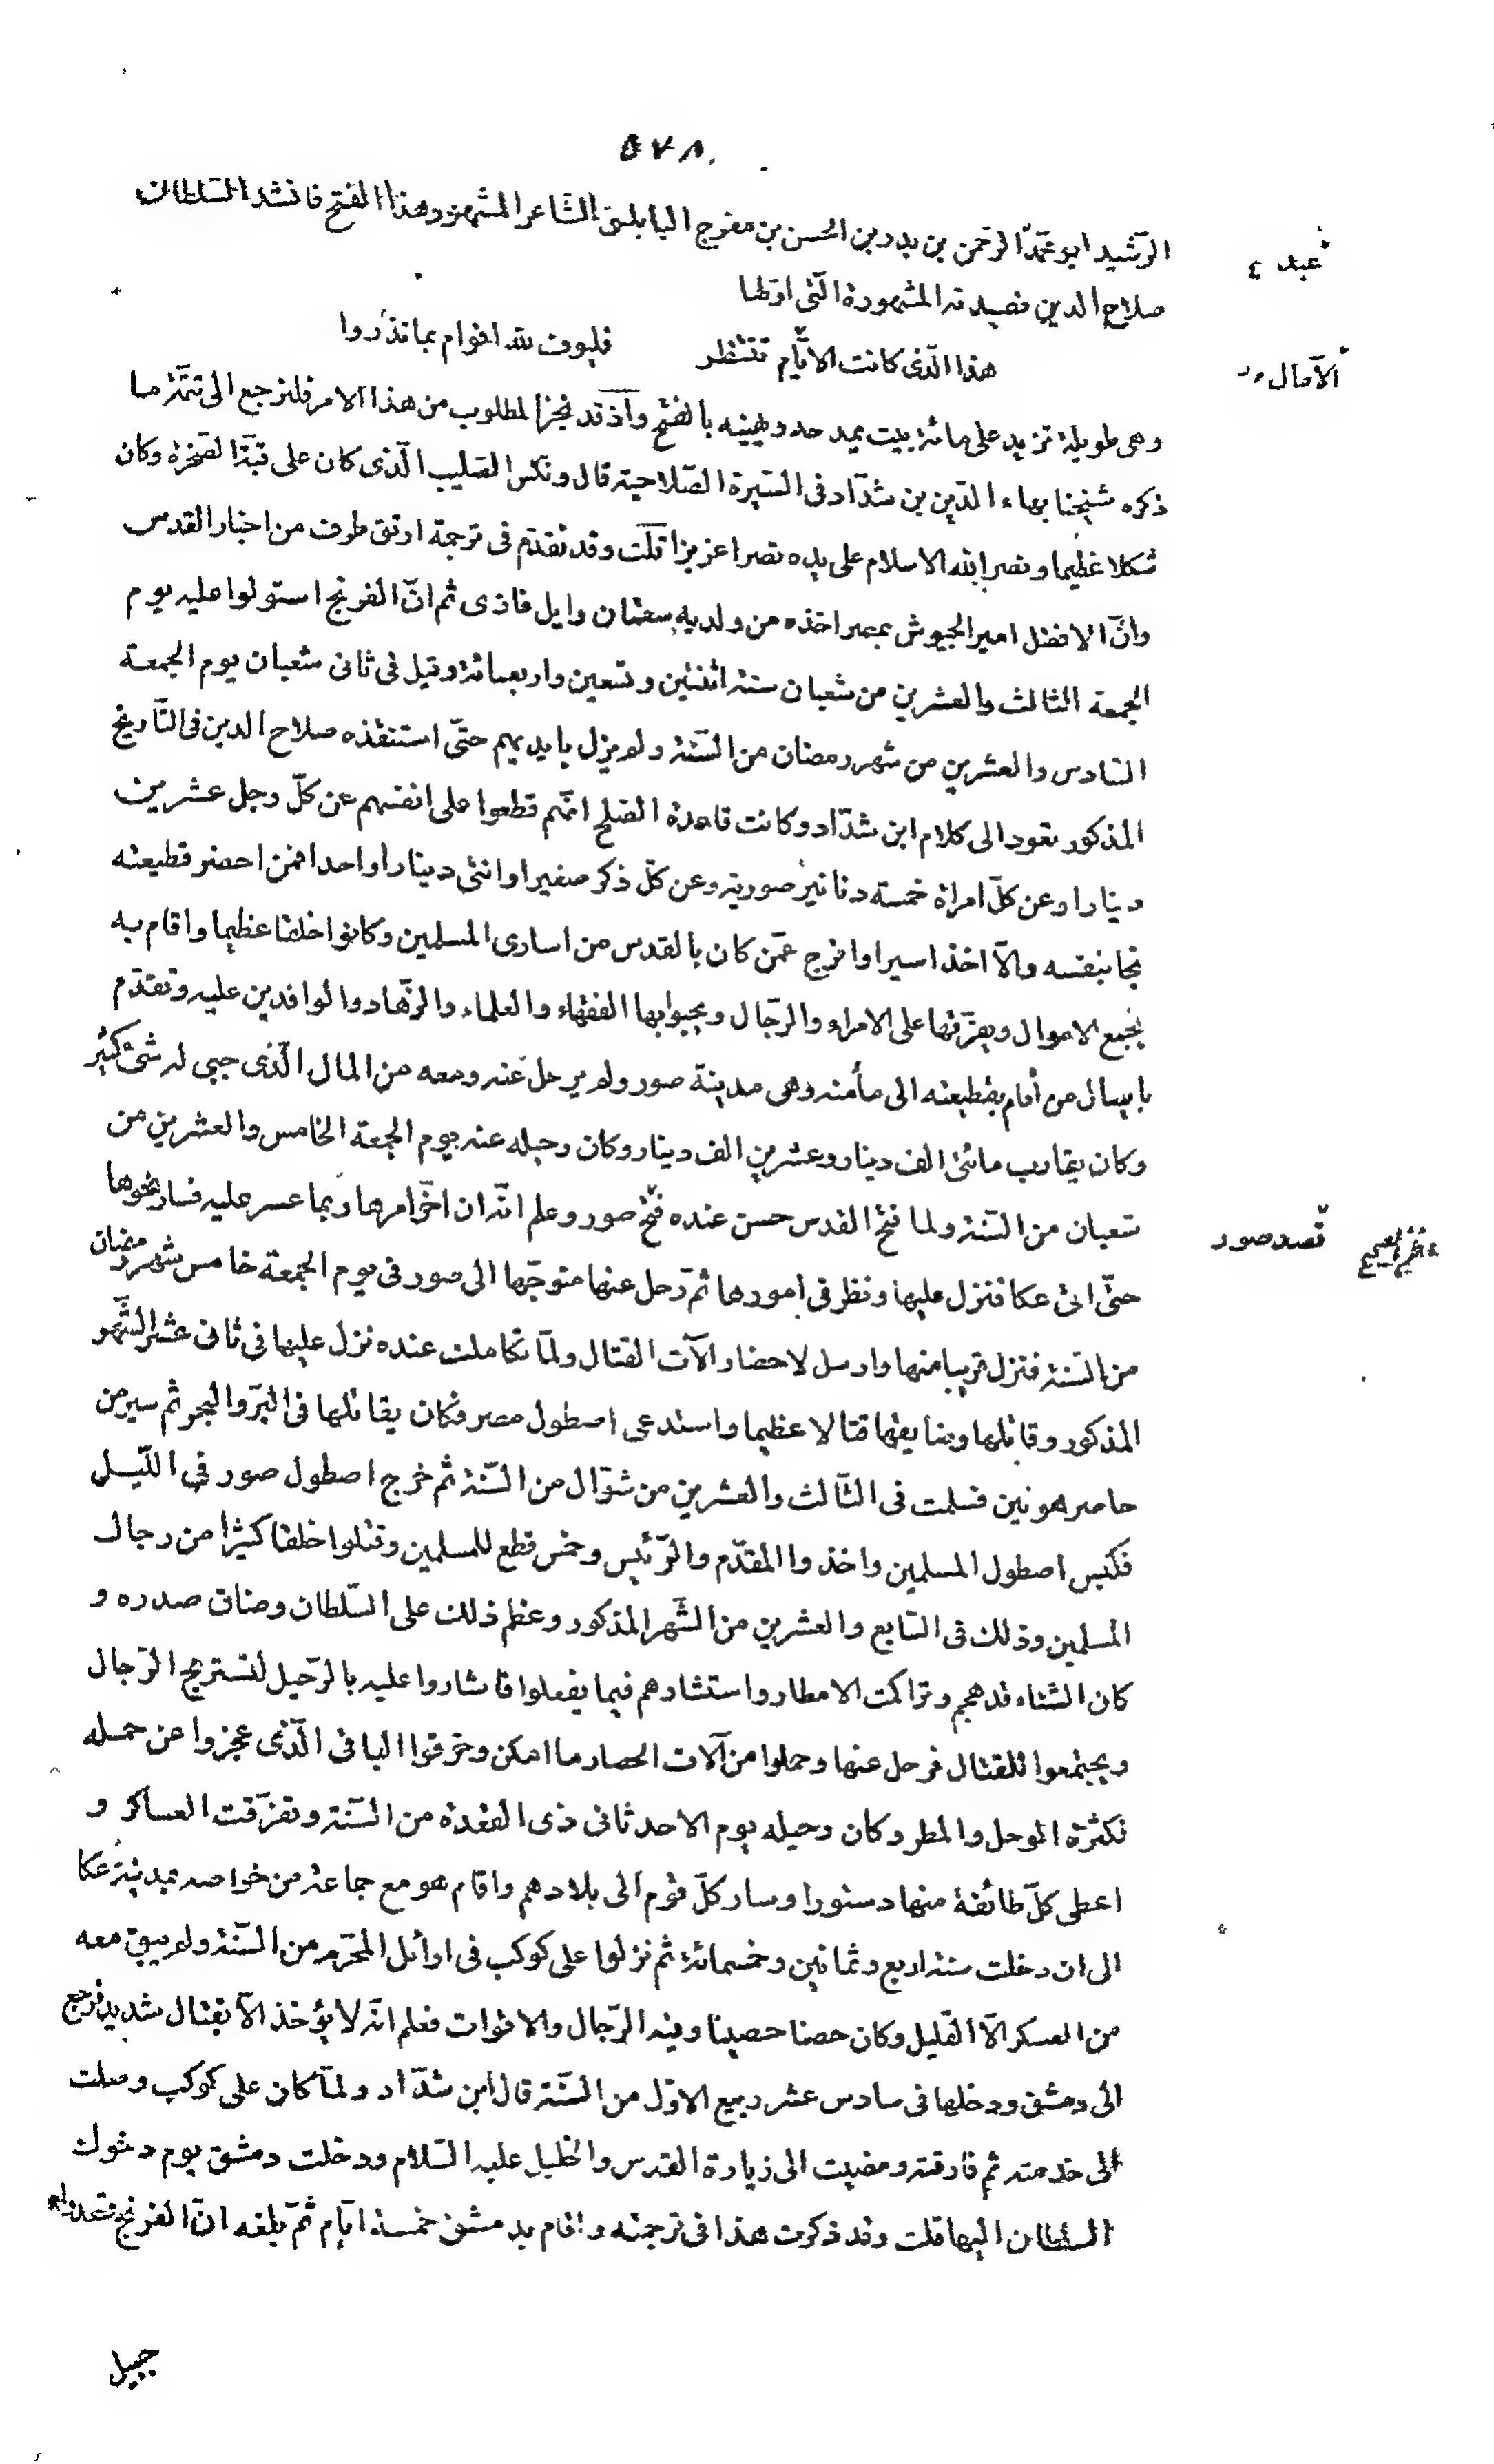 ٥٧٨
الرّشيد ابو محمّد الرحمن بن بدر بن الحسن بن مفرج البابلسى الشاعر المشهور هذا الفتح فانشد السّلطان
عبد
صلاح الدين قصيدته المشهورة الّتى اوّلها
هذا الّذى كانت الايّام تنتظر فليوف لله اقوام بما نذروا
الآمال
وهى طويلة تزيد على مائة بيت يمدحه ويهنيه بالفتح واذ قد نجز المطلوب من هذا الامر فلنرجع الى تتمّة ما
ذكره شيخنا بهاء الدّين بن شدّاد فى السّيرة الصّلاحية قال ونكس الصّليب الّذى كان على قبّة الصّخرة وكان
شكلا عظيما ونصر الله الاسلام على يده نصرا عزيزا قلت وقد تقدّم فى ترجمة ارتق طرف من اخبار القدس
وانّ الافضل امير الجيوش بمصر اخذه من ولديه سقمان وايل غازى ثم انّ الفرنج استولوا عليه يوم
الجمعة الثالث والعشرين من شعبان سنة اثنتين وتسعين واربعمائة وقيل فى ثانى شعبان يوم الجمعة
السّادس والعشرين من شهر رمضان من السّنة ولم يزل بايديهم حتّى استنقذه صلاح الدين فى التّاريخ
المذكور نعود الى كلام ابن شدّاد وكانت قاعدة الصّلح انّهم قطعوا على انفسهم عن كلّ رجل عشرين
دينارا وعن كلّ امراة خمسة دنانير صورية وعن كلّ ذكر صغير او انثى دينارا واحدا فمن احضر قطيعته
نجا بنفسه والّا اخذ اسيرا وافرج عمّن كان بالقدس من اسارى المسلمين وكانوا خلقا عظيما واقام به
يجمع الاموال ويفرّقها على الامراء والرّجال ويحبوا بها الفقهاء والعلماء والزّهاد والوافدين عليه وتقدّم
بايصال من أقام بقطيعته الى مأمنه وهى مدينة صور ولم يرحل عنه ومعه من المال الّذى جبى له شئ كثير
وكان يقارب مائتى الف دينار وعشرين الف دينار وكان رحيله عنه يوم الجمعة الخامس والعشرين من
شعبان من السّنة ولما فتح القدس حسن عنده فتح صور وعلم انّه ان اخّر امرها ربما عسر عليه فسار نحوها
قصد صور
حتّى اتى عكا فنزل عليها ونظر فى امورها ثمّ رحل عنها متوجّها الى صور فى يوم الجمعة خامس شهر رمضان
من السّنة فنزل قريبا منها وارسل لاحضار الآت القتال ولمّا تكاملت عنده نزل عليها فى ثانى عشر الشّهر
المذكور وقاتلها وضايقها قتالا عظيما واستدعى اصطول مصر فكان يقاتلها فى البرّ والبحر ثم سير من
حاصر هونين فسلمت فى الثّالث والعشرين من شوّال من السّنة ثم خرج اصطول صور فى اللّيل
فكبس اصطول المسلمين واخذوا المقدّم والرّئيس وخمس قطع للمسلمين وقتلوا خلقا كثيرا من رجال
المسلمين وذلك فى السّابع والعشرين من الشّهر المذكور وعظم ذلك على السّلطان وضاق صدره و
كان الشتاء قد هجم وتراكمت الامطار واستشارهم فيما يفعلوا فاشاروا عليه بالرّحيل لتستريح الرّجال
ويجتمعوا للقتال فرحل عنها وحملوا من آلات الحصار ما امكن وحرقوا الباقى الّذى عجزوا عن حمله
لكثرة الوحل والمطر وكان رحيله يوم الاحد ثانى ذى القعدة من السّنة وتفرّقت العساكر و
اعطى كلّ طائفة منها دستورا وسار كلّ قوم الى بلادهم واقام هو مع جماعة من خواصه بمدينة عكا
الى ان دخلت سنة اربع وثمانين وخمسمائة ثم نزلوا على كوكب فى اوائل المحرّم من السّنة ولم يبق معه
من العسكر الّا القليل وكان حصنا حصينا وفيه الرّجال والاقوات فعلم انّه لا يؤخذ الّا بقتال شديد فرجع
الى دمشق ودخلها فى سادس عشر ربيع الاوّل من السّنة قال ابن شدّاد ولمّا كان على كوكب وصلت
الى خدمته ثم فارقته ومضيت الى زيارة القدس والخليل عليه السّلام ودخلت دمشق يوم دخول
السلطان اليها قلت وقد ذكرت هذا فى ترجمته واقام بدمشق خمسة ايّام ثمّ بلغه انّ الفرنج قصدوا
جبيل